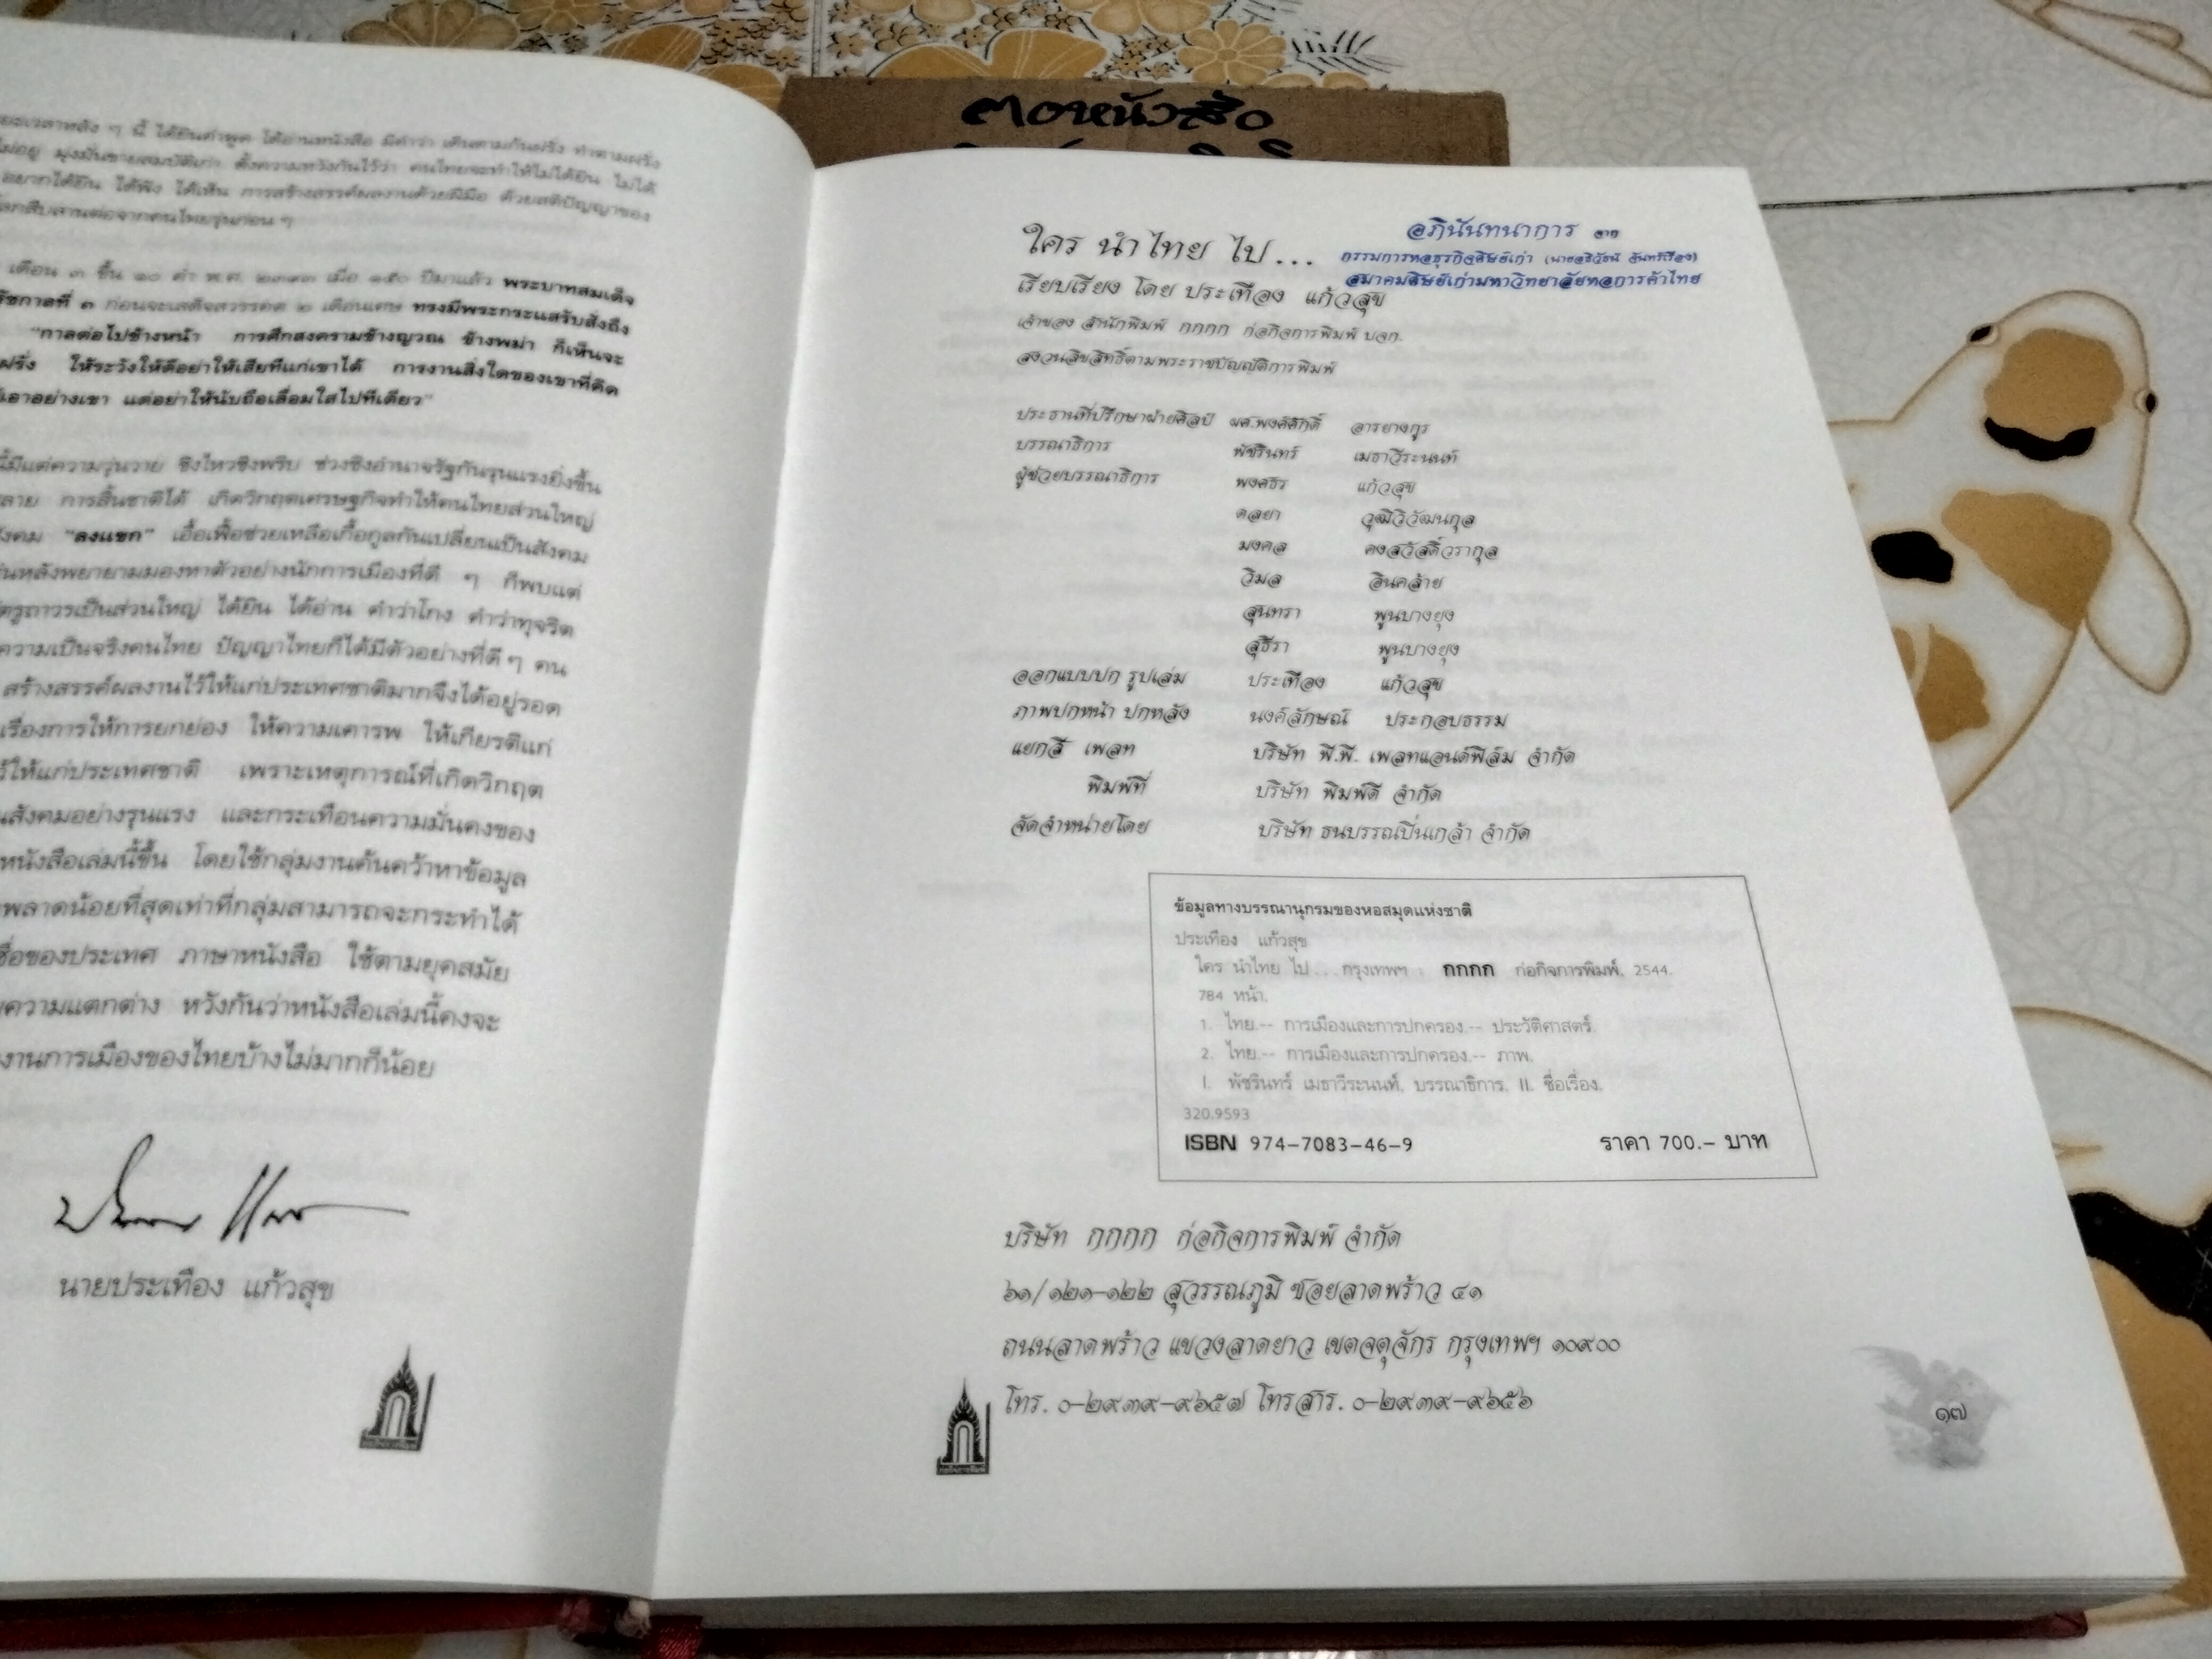 ตอหนังสือ
ยะเวลาหลัง ๆ นี้ ได้ยินคำพูด ได้อ่านหนังสือ มีคำว่า เดินตามก้นฝรั่ง ทำตามฝรั่ง
ไม่อยู่ มุ่งมั่นขายสมบัติเก่า ตั้งความหวังกันไว้ว่า คนไทยจะทำให้ไม่ได้ยิน ไม่ได้
อยากได้ยิน ได้ฟัง ได้เห็น การสร้างสรรค์ผลงานด้วยฝีมือ ด้วยสติปัญญาของ
สืบสานต่อจากคนไทยรุ่นก่อน ๆ
เดือน ๓ ขึ้น ๑๐ ค่ำ พ.ศ. ๒๓๙๓ เมื่อ ๑๕๐ ปีมาแล้ว พระบาทสมเด็จ
รัชกาลที่ ๓ ก่อนจะเสด็จสวรรคต ๒ เดือนเศษ ทรงมีพระกระแสรับสั่งถึง
"กาลต่อไปข้างหน้า การศึกสงครามข้างญวณ ข้างพม่า ก็เห็นจะ
ฝรั่ง ให้ระวังให้ดีอย่าให้เสียทีแก่เขาได้ การงานสิ่งใดของเขาที่คิด
เอาอย่างเขา แต่อย่าให้นับถือเลื่อมใสไปทีเดียว"
นี้มีแต่ความวุ่นวาย ชิงไหวชิงพริบ ช่วงชิงอำนาจรัฐกันรุนแรงยิ่งขึ้น
ลาย การสิ้นชาติได้ เกิดวิกฤตเศรษฐกิจทำให้คนไทยส่วนใหญ่
ังคม "ลงแขก" เอื้อเฟื้อช่วยเหลือเกื้อกูลกันเปลี่ยนเป็นสังคม
่นหลังพยายามมองหาตัวอย่างนักการเมืองที่ดี ๆ ก็พบแต่
ัตรูถาวรเป็นส่วนใหญ่ ได้ยิน ได้อ่าน คำว่าโกง คำว่าทุจริต
ความเป็นจริงคนไทย ปัญญาไทยก็ได้มีตัวอย่างที่ดี ๆ คน
สร้างสรรค์ผลงานไว้ให้แก่ประเทศชาติมากจึงได้อยู่รอด
เรื่องการให้การยกย่อง ให้ความเคารพ ให้เกียรติแก่
ว้ให้แก่ประเทศชาติ เพราะเหตุการณ์ที่เกิดวิกฤต
นสังคมอย่างรุนแรง และกระเทือนความมั่นคงของ
หนังสือเล่มนี้ขึ้น โดยใช้กลุ่มงานค้นคว้าหาข้อมูล
พลาดน้อยที่สุดเท่าที่กลุ่มสามารถจะกระทำได้
ชื่อของประเทศ ภาษาหนังสือ ใช้ตามยุคสมัย
ความแตกต่าง หวังกันว่าหนังสือเล่มนี้คงจะ
งานการเมืองของไทยบ้างไม่มากก็น้อย
นายประเทือง แก้วสุข
ใคร นำไทย ไป...
อภินันทนาการ จาก
กรรมการหอธุรกิจศิษย์เก่า (นายอธิวัธน์ จันทร์เรือง)
สมาคมศิษย์เก่ามหาวิทยาลัยหอการค้าไทย
เรียบเรียง โดย ประเทือง แก้วสุข
เจ้าของ สำนักพิมพ์ กกกก ก่อกิจการพิมพ์ บจก.
สงวนลิขสิทธิ์ตามพระราชบัญญัติการพิมพ์
ประธานที่ปรึกษาฝ่ายศิลป์ ผศ.พงศ์ศักดิ์ อารยางกูร
บรรณาธิการ พัชรินทร์ เมธาวีระนนท์
ผู้ช่วยบรรณาธิการ พงศธร แก้วสุข
ดลยา วุฒิวิวัฒนกุล
มงคล คงสวัสดิ์วรากุล
วิมล อินคล้าย
สุนทรา พูนบางยุง
สุธีรา พูนบางยุง
ออกแบบปก รูปเล่ม ประเทือง แก้วสุข
ภาพปกหน้า ปกหลัง นงค์ลักษณ์ ประกอบธรรม
แยกสี เพลท บริษัท พี.พี. เพลทแอนด์ฟิล์ม จำกัด
พิมพ์ที่ บริษัท พิมพ์ดี จำกัด
จัดจำหน่ายโดย บริษัท ธนบรรณปิ่นเกล้า จำกัด
ข้อมูลทางบรรณานุกรมของหอสมุดแห่งชาติ
ประเทือง แก้วสุข
ใคร นำไทย ไป...กรุงเทพฯ : กกกก ก่อกิจการพิมพ์, 2544.
784 หน้า.
1. ไทย.-- การเมืองและการปกครอง.-- ประวัติศาสตร์.
2. ไทย.-- การเมืองและการปกครอง.-- ภาพ.
I. พัชรินทร์ เมธาวีระนนท์, บรรณาธิการ. II. ชื่อเรื่อง.
320.9593
ISBN 974-7083-46-9 ราคา 700.- บาท
บริษัท กกกก ก่อกิจการพิมพ์ จำกัด
๖๑/๑๒๑-๑๒๒ สุวรรณภูมิ ซอยลาดพร้าว ๔๑
ถนนลาดพร้าว แขวงลาดยาว เขตจตุจักร กรุงเทพฯ ๑๐๙๐๐
โทร. ๐-๒๙๓๙-๙๖๕๗ โทรสาร. ๐-๒๙๓๙-๙๖๕๖
๑๗